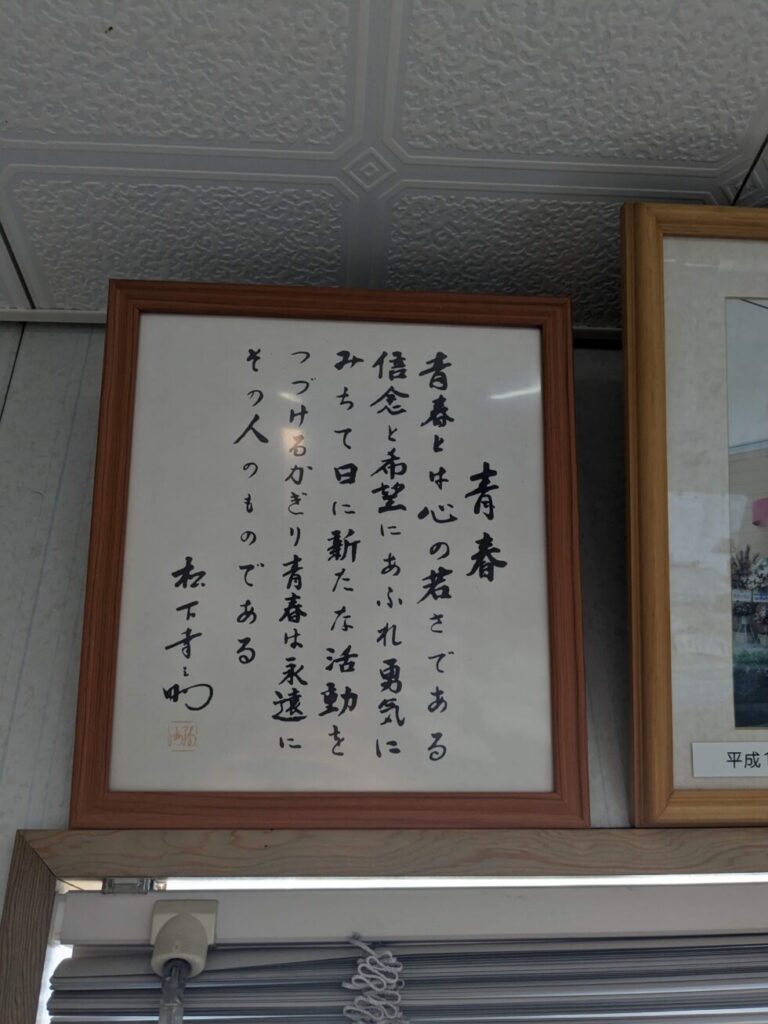 青春
青春とは心の若さである
信念と希望にあふれ勇気に
みちて日に新たな活動を
つづけるかぎり青春は永遠に
その人のものである
松下幸之助
平成1